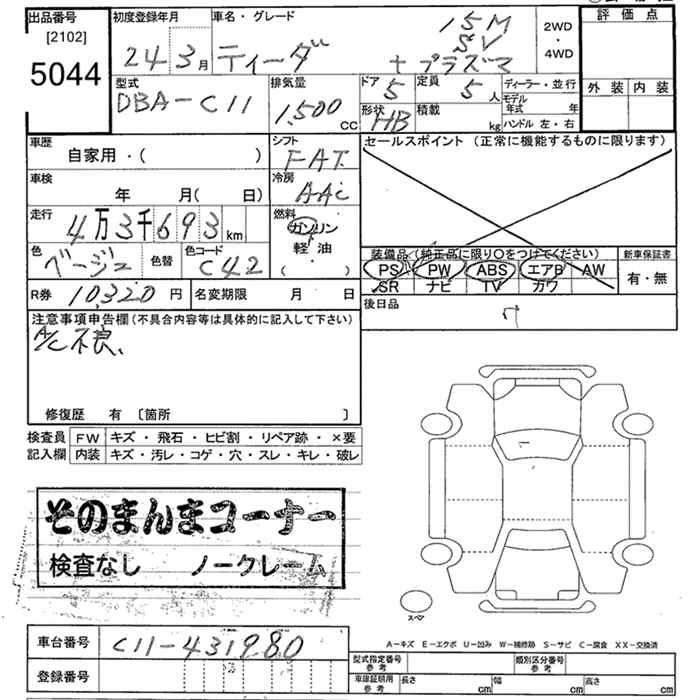 出品番号
[2102]
5044
初度登録年月
24 3月
車名・グレード
ティーダ
15M
SV
+プラズマ
2WD
・
4WD
評価点
外装 内装
型式
DBA-C11
排気量
1,500
CC
ドア
5
定員
5人
形状
HB
積載
kg
ディーラー・並行
モデル年式 年
ハンドル 左・右
車歴
自家用・( )
シフト
FAT
セールスポイント (正常に機能するものに限ります)
車検
年 月( 日)
冷房
AAC
走行
4万3千693km
燃料
ガソリン
軽・油
( ・ )
色
ベージュ
色替
色コード
C42
装備品(純正品に限り○をつけてください)
PS PW ABS エアB AW
SR ナビ TV カワ
新車保証書
有・無
R券 10,320円
名変期限 月 日
後日品
注意事項申告欄(不具合内容等は具体的に記入して下さい)
A/C不良、
修復歴 有 〔箇所 〕
検査員 FW キズ・飛石・ヒビ割・リペア跡・×要
記入欄 内装 キズ・汚レ・コゲ・穴・スレ・キレ・破レ
そのまんまコーナー
検査なし ノークレーム
スペア
車台番号 C11-431980
A-キズ E-エクボ U-凹み W-補修跡 S-サビ C-腐食 XX-交換済
登録番号
型式指定番号 参考
類別区分番号 参考
車庫証明用 参考
長さ cm 幅 cm 高さ cm